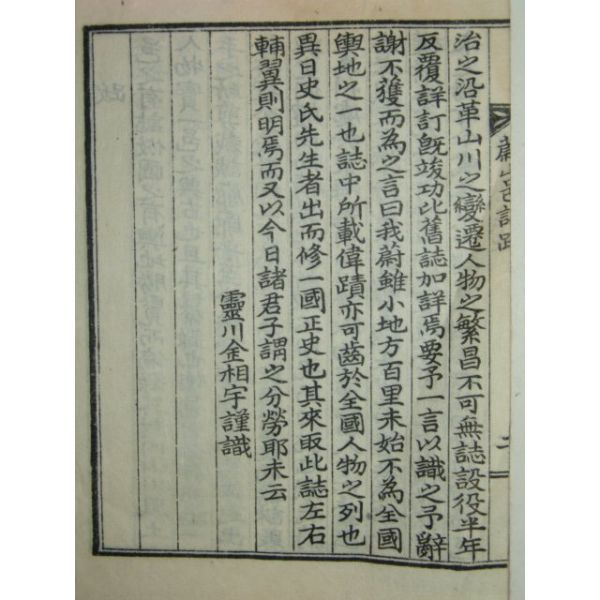 蔚山邑誌跋
二
治之沿革山川之變遷人物之繁昌不可無誌設役半年
反覆詳訂旣竣功比舊誌加詳焉要予一言以識之予辭
謝不獲而為之言曰我蔚雖小地方百里未始不為全國
輿地之一也誌中所載偉蹟亦可齒於全國人物之列也
異日史氏先生者出而修一國正史也其來取此誌左右
輔翼則明焉而又以今日諸君子謂之分勞耶未云
靈川金相宇謹識